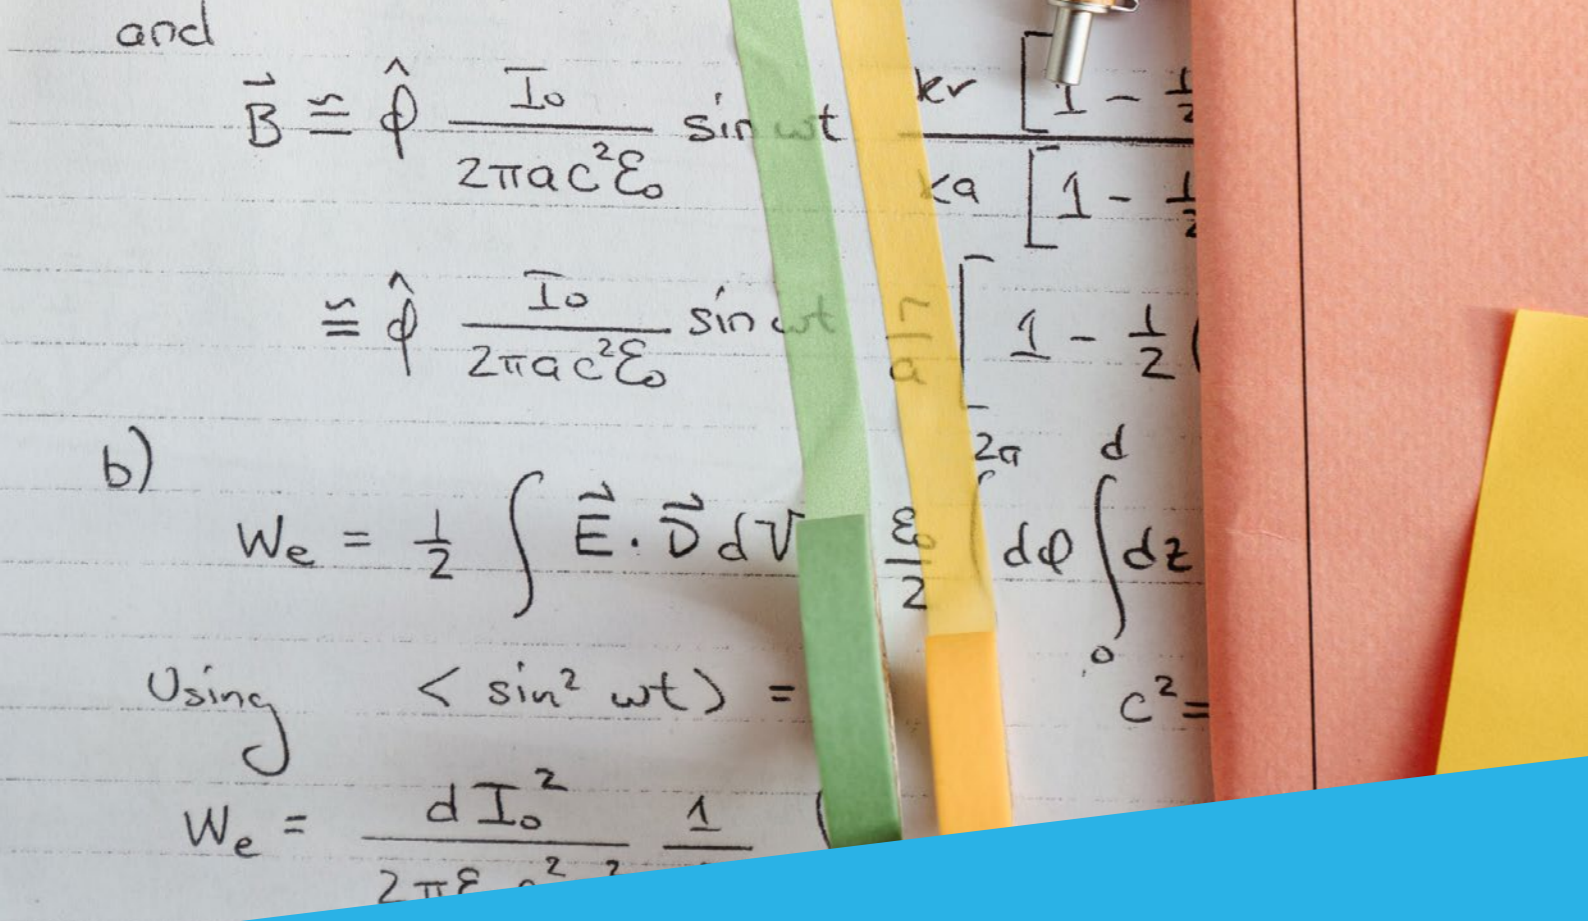 and
B⃗ ≅ φ̂ I₀ / 2πac²ε₀ sin ωt kr [1 - 1/2 / ka [1 - 1/2
≅ φ̂ I₀ / 2πac²ε₀ sin ωt r/a [1 - 1/2 (
b)
Wₑ = 1/2 ∫ E⃗ · D⃗ dV ε₀/2 ∫ 2π dφ ∫ 0 d dz
Using < sin² ωt > = c² =
Wₑ = d I₀² / 2πε 1 (